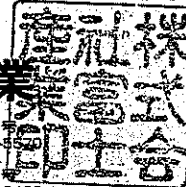 株式会
社富士
産業印
業